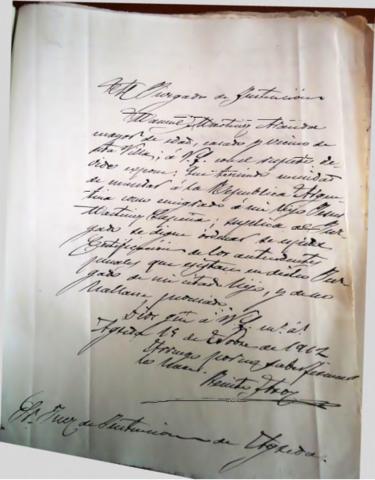 Al Juzgado de Instrucción
Manuel Martinez Aranda
mayor de edad, casado y vecino de
esta Villa; á V.S. con el respeto de-
vido expone: Que teniendo necesidad
de mandar á la Republica Argen-
tina como emigrado á mi hijo
Martinez suplica al Juz-
gado de digne ordenar se expida
Certificacion de los antecedentes
penales, que existan en dicho Juz-
gado de mi citado hijo, y de no
hallarse procesado
Dios gue á V.S. m. a.
Agreda 15 de de 1912
por no saber firmar
Benito
Sr. Juez de Instruccion de Agreda.